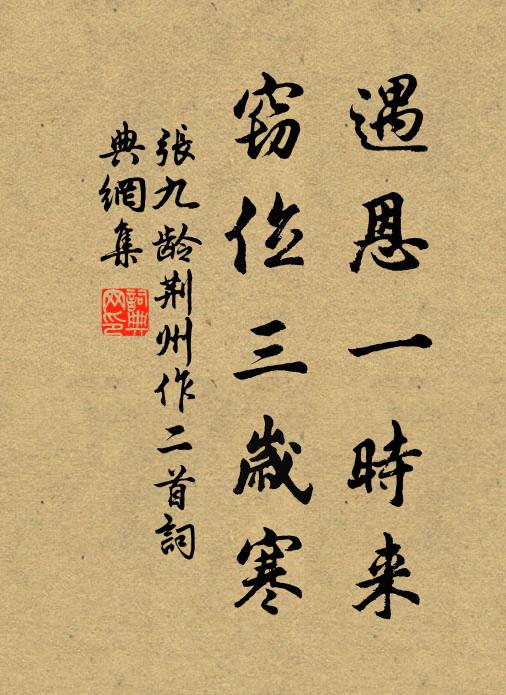 遇恩一時来
竊位三歲寒
張九龄荆州作二首詞
典網集
詞典
网印